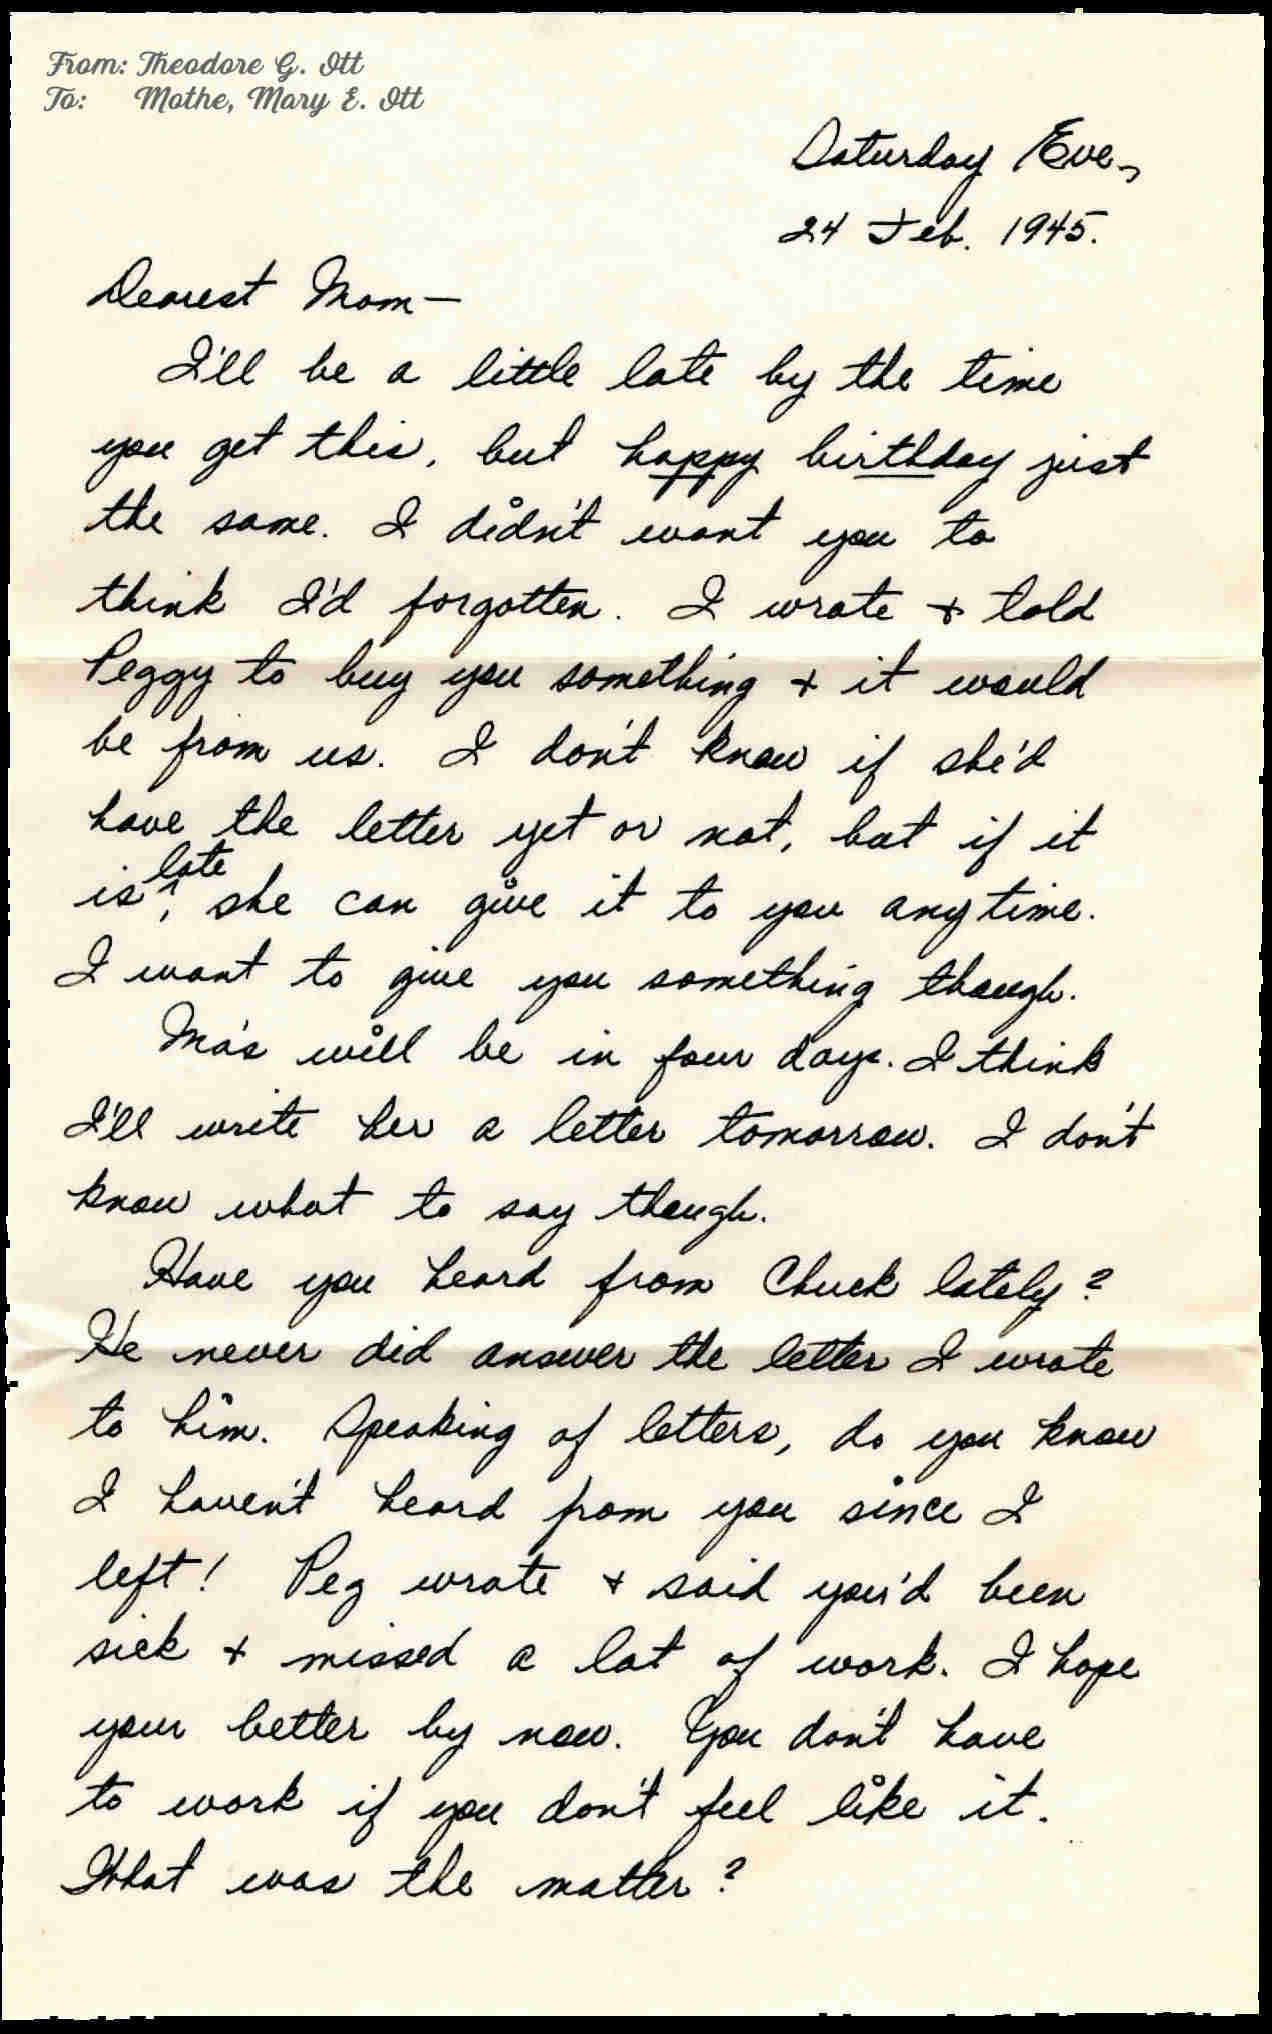 From: Theodore G. Ott
To: Mothe, Mary E. Ott
Saturday Eve,
24 Feb. 1945.
Dearest Mom—
I'll be a little late by the time
you get this, but happy birthday just
the same. I didn't want you to
think I'd forgotten. I wrote + told
Peggy to buy you something + it would
be from us. I don't know if she'd
have the letter yet or not, but if it
late
is^, she can give it to you anytime.
I want to give you something though.
Ma's will be in four days. I think
I'll write her a letter tomorrow. I don't
know what to say though.
Have you heard from Chuck lately?
He never did answer the letter I wrote
to him. Speaking of letters, do you know
I haven't heard from you since I
left! Peg wrote + said you'd been
sick + missed a lot of work. I hope
your better by now. You don't have
to work if you don't feel like it.
What was the matter?